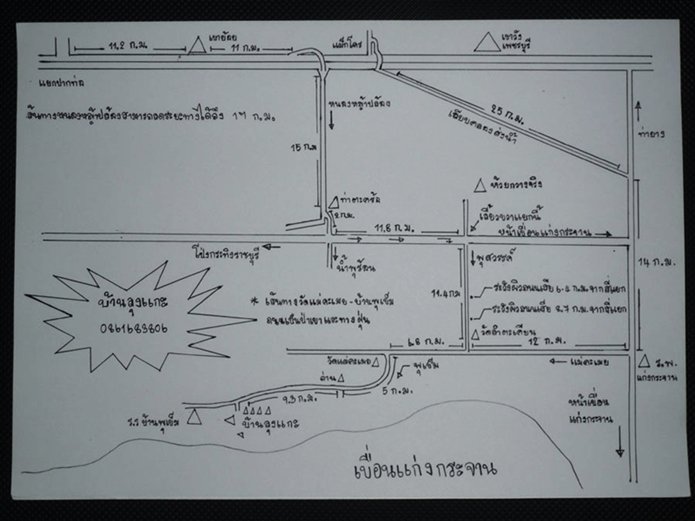 11.2 ก.ม.
เขาอีโก้
11 ก.ม.
แม็กโคร
เขาวัง
เพชรบุรี
แยกปากท่อ
เส้นทางหนองหญ้าปล้องสามารถลดระยะทางได้ถึง 17 ก.ม.
หนองหญ้าปล้อง
25 ก.ม.
เลียบคลองส่งน้ำ
ท่ายาง
15 ก.ม
ท่าตะคร้อ
2 ก.ม.
ห้วยกวางจริง
เลี้ยวขวาแยกนี้
11.8 ก.ม.
หน้าเขื่อนแก่งกระจาน
โป่งกระทิงราชบุรี
น้ำพุร้อน
พุสวรรค์
14 ก.ม.
บ้านลุงแกะ
0861683806
* เส้นทางวังแม่ตะเมย - บ้านพุเข็ม
ถนนเป็นป่าเขาและทางฝุ่น
11.4 กม
ระวังผิวถนนเสีย 6.2 ก.ม. จากสี่แยก
ระวังผิวถนนเสีย 8.7 ก.ม. จากสี่แยก
6.8 ก.ม.
12 ก.ม.
วัดแม่ตะเมย
พุเข็ม
แม่ตะเมย
ร.พ.
แก่งกระจาน
ด่าน
5 ก.ม.
9.3 ก.ม.
ร.ร บ้านพุเข็ม
บ้านลุงแกะ
หน้าเขื่อน
แก่งกระจาน
เขื่อนแก่งกระจาน